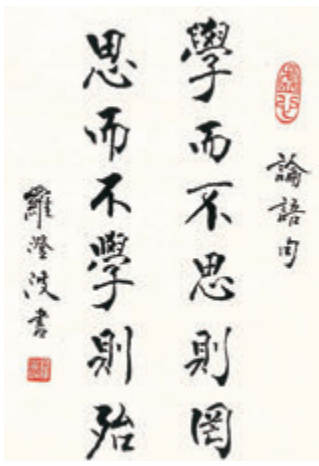 論語句
學而不思則罔
思而不學則殆
羅澄波書